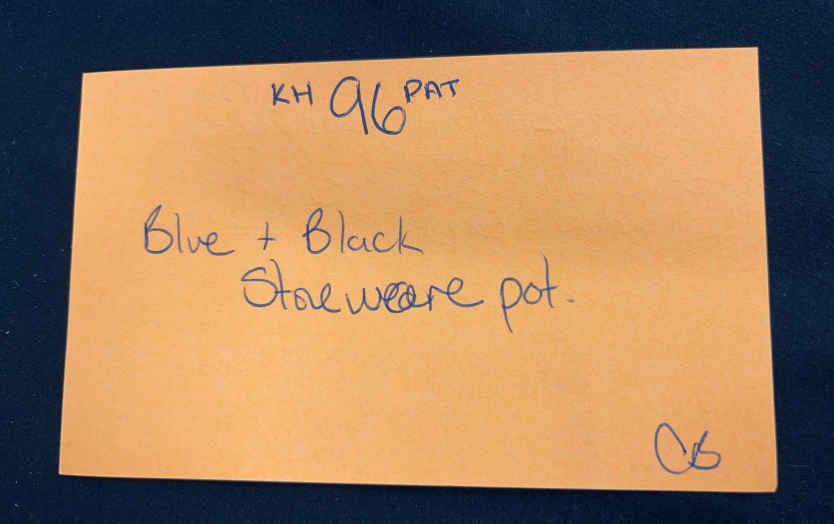 KH 96 PAT
Blue + Black
Stoneweare pot.
CB